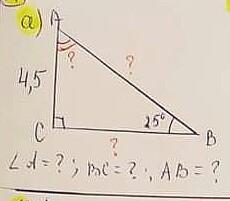 а) A
? ?
4,5
C 25° B
?
∠A = ? ; BC = ? ; AB = ?